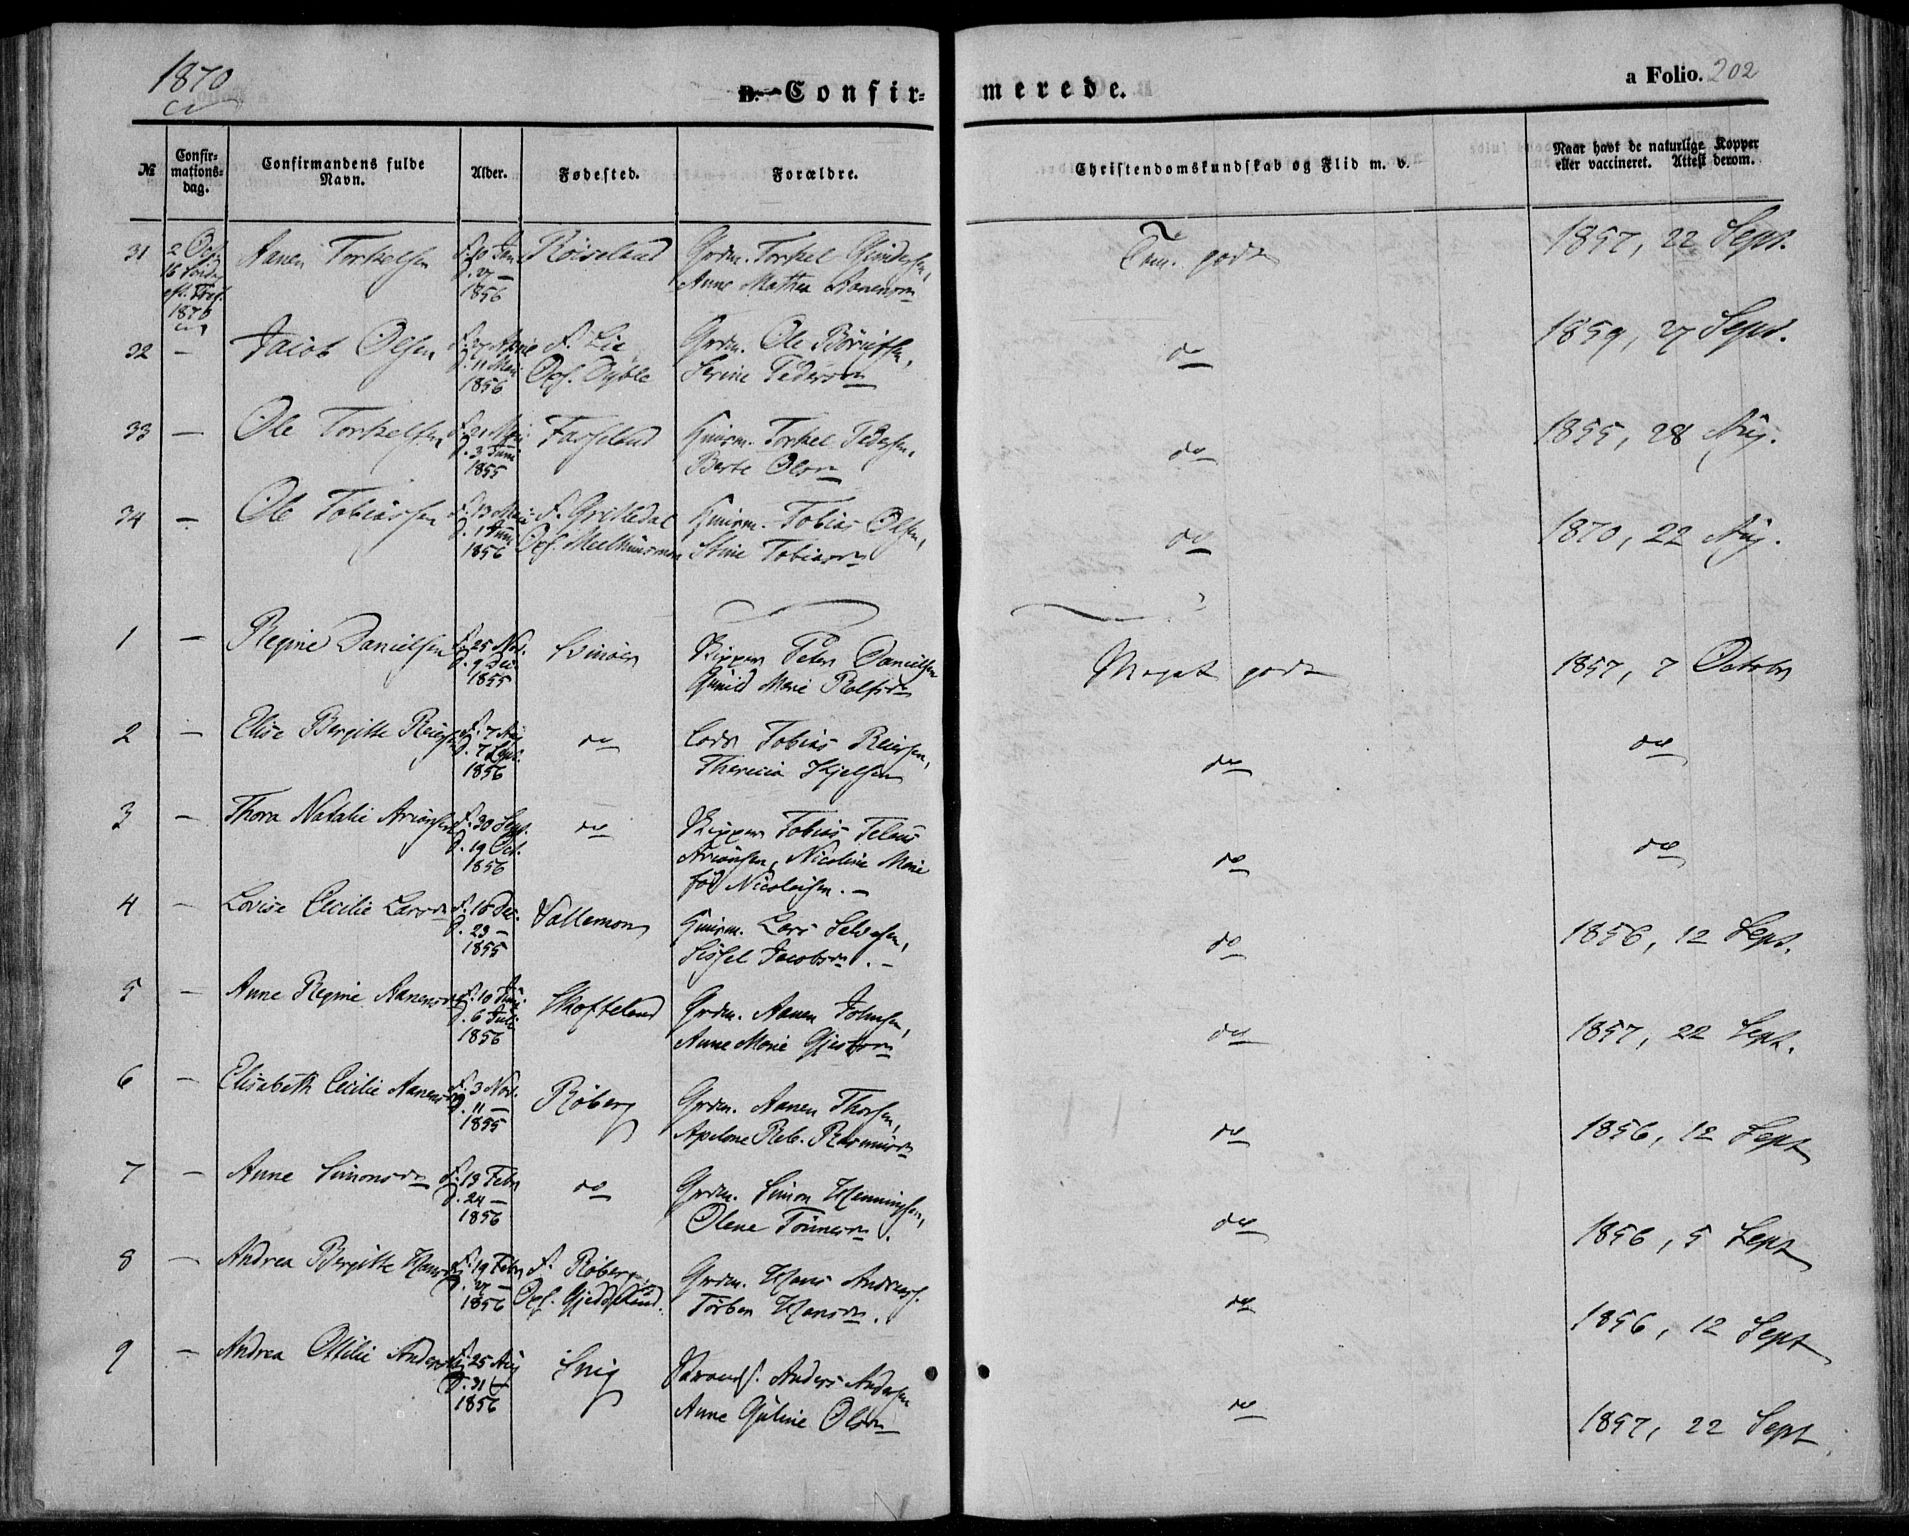 1870
D. Confirmerede.
a Folio. 202
№
Confirmationsdag.
Confirmandens fulde Navn.
Alder.
Fødested.
Forældre.
Christendomskundskab og Flid m. v.
Naar havt de naturlige Kopper eller vaccineret. Attest derom.
31 2 Oct. Aanen Torkelsen f. Jan. Røiseland Grdm. Torkel 1857, 22 Sept.
16 Sønd. d. 27 — Anne Mathea Aanensdr Tem. godt
eft. Tref. 1856
1870
32 — Jacob Olsen f. 27 April f. Lie Grdm. Ole 1859, 27 Sept.
d. 11 Mai Opf. Dybbe Serine Pedersdr do
1856
33 — Ole Torkelsen f. 21 Mai Fasseland Huusm. Torkel Pedersen, 1855, 28 Aug.
d. 3 Juni Berte Olsdr do
1855
34 — Ole Tobiassen f. 13 Mai f. Grisledal Huusm. Tobias Olsen, 1870, 22 Aug.
d. 1 Juni Opf. Stine Tobiasdr do
1856
1 — Regine Danielsen f. 25 Nov. Svinøer Skipper Peter Danielsen Meget godt 1857, 7 October
d. 9 Dec. Gunild Marie Rolfsdr
1855
2 — Elise Bergitte Reiersen f. 7 Aug do Lods Tobias Reiersen, do
d. 7 Sept. Theresia Kjelsen do
1856
3 — Thora Natalie Ariansen f. 30 Sept. do Skipper Tobias Telaus do
d. 19 Oct. Ariansen, Nicoline Marie do
1856 fød Nicolaisen. —
4 — Lovise Cecilie Larsdr f. 16 Dec. Vallemon Huusm. Lars Salvesen, do 1856, 12 Sept.
d. 23 — Sissel Jacobsdr. —
1855
5 — Anne Regine Aanensdr f. 10 Juni Skofteland Grdm. Aanen Johnsen, do 1857, 22 Sept.
d. 6 Juli Anne Marie
1856
6 — Elisabeth Cecilie Aanensdr f. 3 Nov. Røberg Grdm. Aanen Thorsen, do 1856, 12 Sept
d. 11 — Apelone Reb. Rasmusdr
1855
7 — Anne Simonsdr f. 13 Febr do Grdm. Simon Henningsen, do 1856, 5 Sept
d. 24 — Olene Tønnesdr.
1856
8 — Andrea Bergitte Hansdr f. 19 Febr f. Røberg Grdm. Hans Anders. do 1856, 12 Sept
d. 27 — Opf. Torbor Hansdr.
1856
9 — Andrea Ottilie Andersen f. 25 Aug Snig Strands. Anders Andersen do 1857, 22 Sept
d. 31 — Anne Guline Olsdr
1856